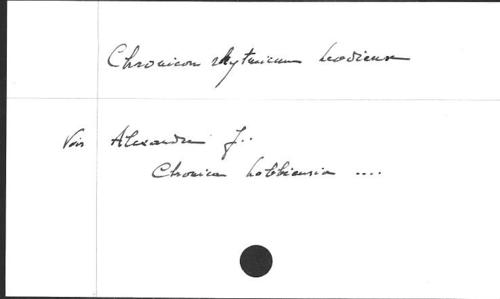 Chronicon rhytmicum Leodiense
Voir Alexandre J..
Chronica Lobbiensia ....